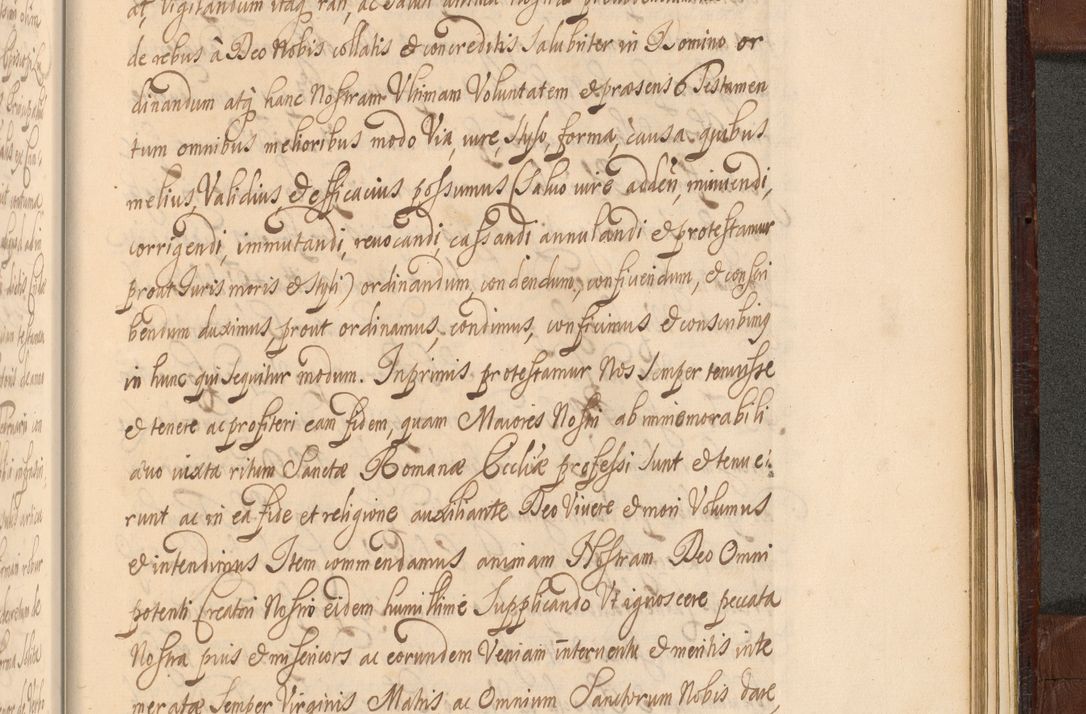 at Vigilandum itaq rati, ac
de rebus à Deo Nobis collatis & concreditis Salubriter in Domino or
dinandum atq hanc Nostram Vltimam Voluntatem & præsens Testamen
tum omnibus melioribus modo Via, iure, stylo, forma, causa quibus
melius, Validius, & efficacius possumus (Salvo iure adden, minuendi,
corrigendi, immutandi, revocandi, cassandi annullandi & protestamur
prout Juris moris & styli) ordinandum, condendum, conficiendum, & conscri
bendum duximus, prout ordinamus, condimus, conficimus & conscribimq
in hunc qui Sequitur modum. Inprimis protestamur Nos Semper tenuisse
& tenere ac profiteri eam fidem, quam Maiores Nostri ab immemorabili
ævo iuxta ritum Sanctæ Romanæ Eccliæ professi Sunt & tenue:
runt ac in ea fide et religione auxiliante Deo Vivere & mori Volumus
& intendimus Item commendamus animam Nostram Deo Omni
potenti Creatori Nostro eidem humillime Supplicando Vt ignoscere peccata
Nostra pius & misericors ac eorundem Veniam interventu & meritis inte
meratæ Semper Virginis Matris ac Omnium Sanctorum Nobis dare,